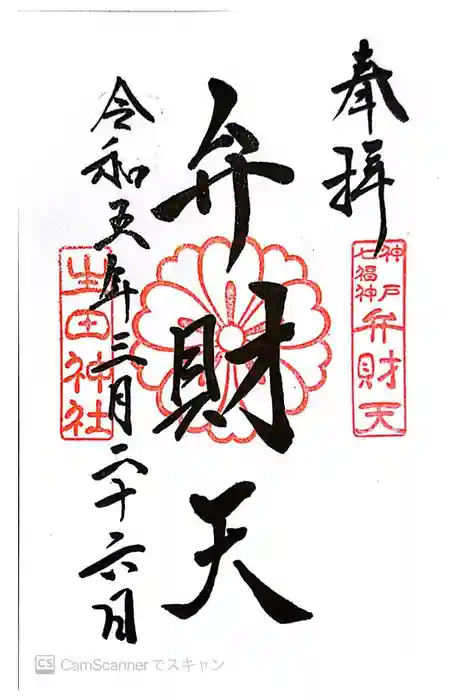 奉拝
神戸
七福神
弁財天
弁財天
令和五年三月二十六日
生田神社
CS CamScannerでスキャン